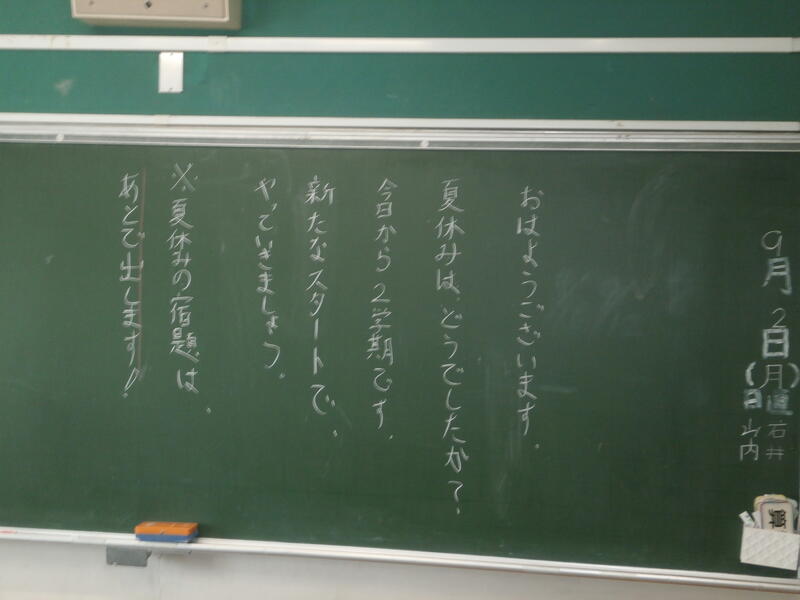 9月2日(月)
日直 石井
山内
おはようございます。
夏休みは、どうでしたか？
今日から2学期です。
新たなスタートで、
やっていきましょう。
※夏休みの宿題は、
あとで出します！